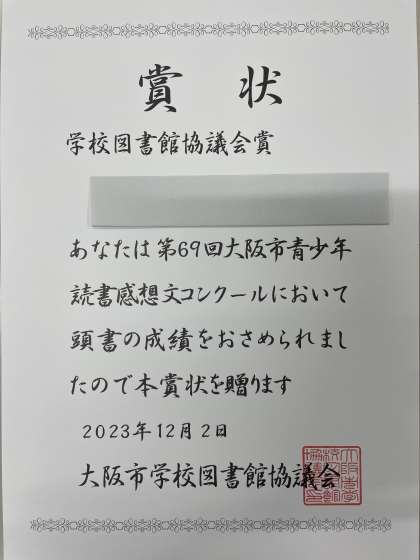 賞 状
学校図書館協議会賞
あなたは第69回大阪市青少年
読書感想文コンクールにおいて
頭書の成績をおさめられまし
たので本賞状を贈ります
2023年12月2日
大阪市学校図書館協議会